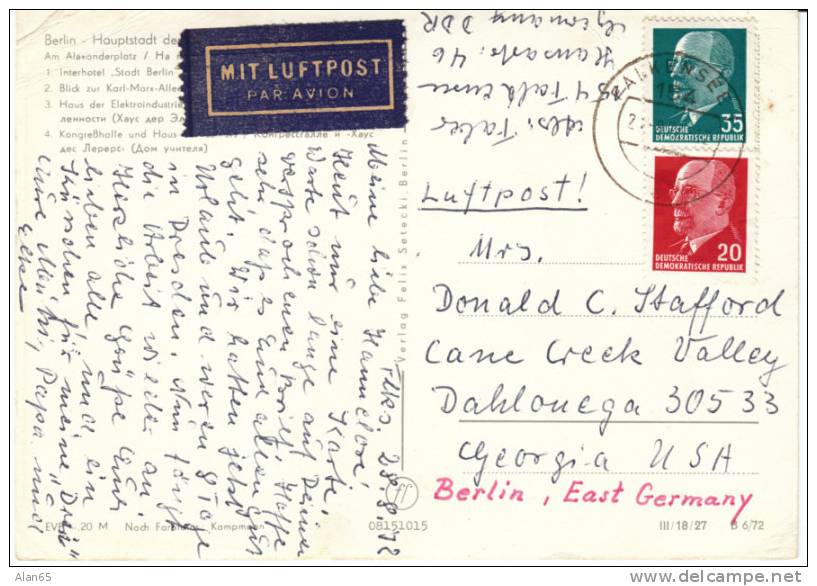 Berlin - Hauptstadt der
Am Alexanderplatz / На
1. Interhotel „Stadt Berlin
2. Blick zur Karl-Marx-Allee
3. Haus der Elektroindustrie
ленности (Хаус дер Эл
4. Kongreßhalle und Haus
Конгрессгалле и «Хаус
дес Лерерс» (Дом учителя)
MIT LUFTPOST
PAR AVION
Flks. 28.8.72
Meine liebe Hannelore!
Heut nur eine Karte.
Warte schon lange auf Deinen
versprochenen Brief. Hoffe
sehr daß es Euch allen gut
geht. Wir hatten jetzt
Urlaub und waren 8 Tage
in Dresden. Nun fängt
die Arbeit wieder an.
Herzliche Grüße Euch
lieben alle und ein
Küsschen für meine „Drei"
Eure Mutti, Papa und
Else
Verlag Felix Setecki Berlin
Abs. Faber
154 Falkensee
Hansastr. 46
Germany DDR
FALKENSEE
154
35
DEUTSCHE
DEMOKRATISCHE REPUBLIK
20
DEUTSCHE
DEMOKRATISCHE REPUBLIK
Luftpost!
Mrs.
Donald C. Stafford
Cane Creek Valley
Dahlonega 30533
Georgia USA
Berlin, East Germany
EVP -.20 M Nach Farbfotos Kampmann
08151015
III/18/27 B 6/72
Alan65
www.delcampe.net